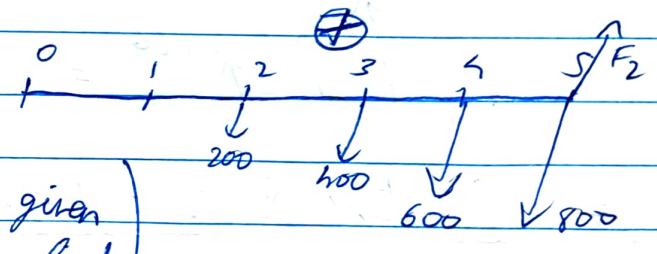 +
0 1 2 3 4 5 F2
200 400 600 800
given